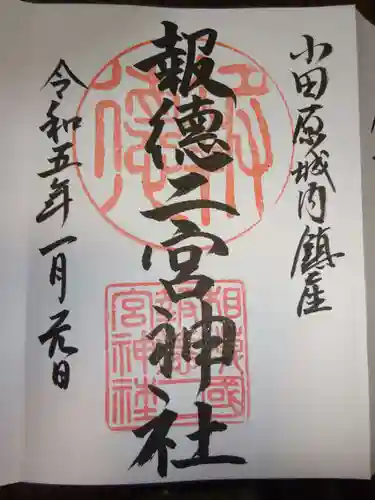 小田原城内鎮座
報徳二宮神社
令和五年一月元日
相模國
報徳二
宮神社
報徳